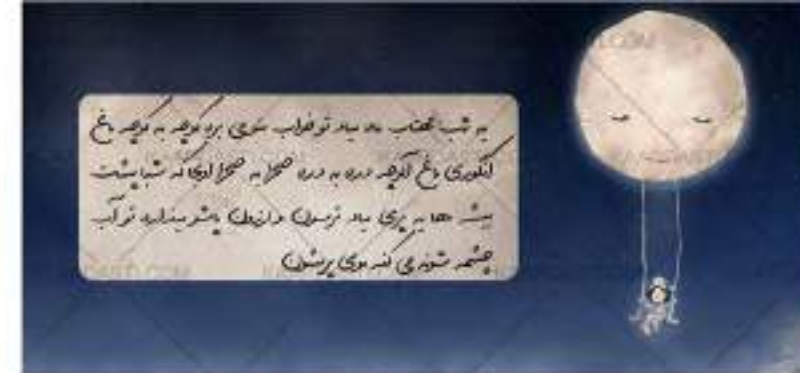 یه شب مهتاب ماه میاد تو خواب منو می بره کوچه به کوچه باغ
انگوری باغ آلوچه دره به دره صحرا به صحرا اونجا که شبا پشت
بیشه ها یه پری میاد ترسون و لرزون پاشو میذاره تو آب
چشمه شونه می کنه موی پریشون